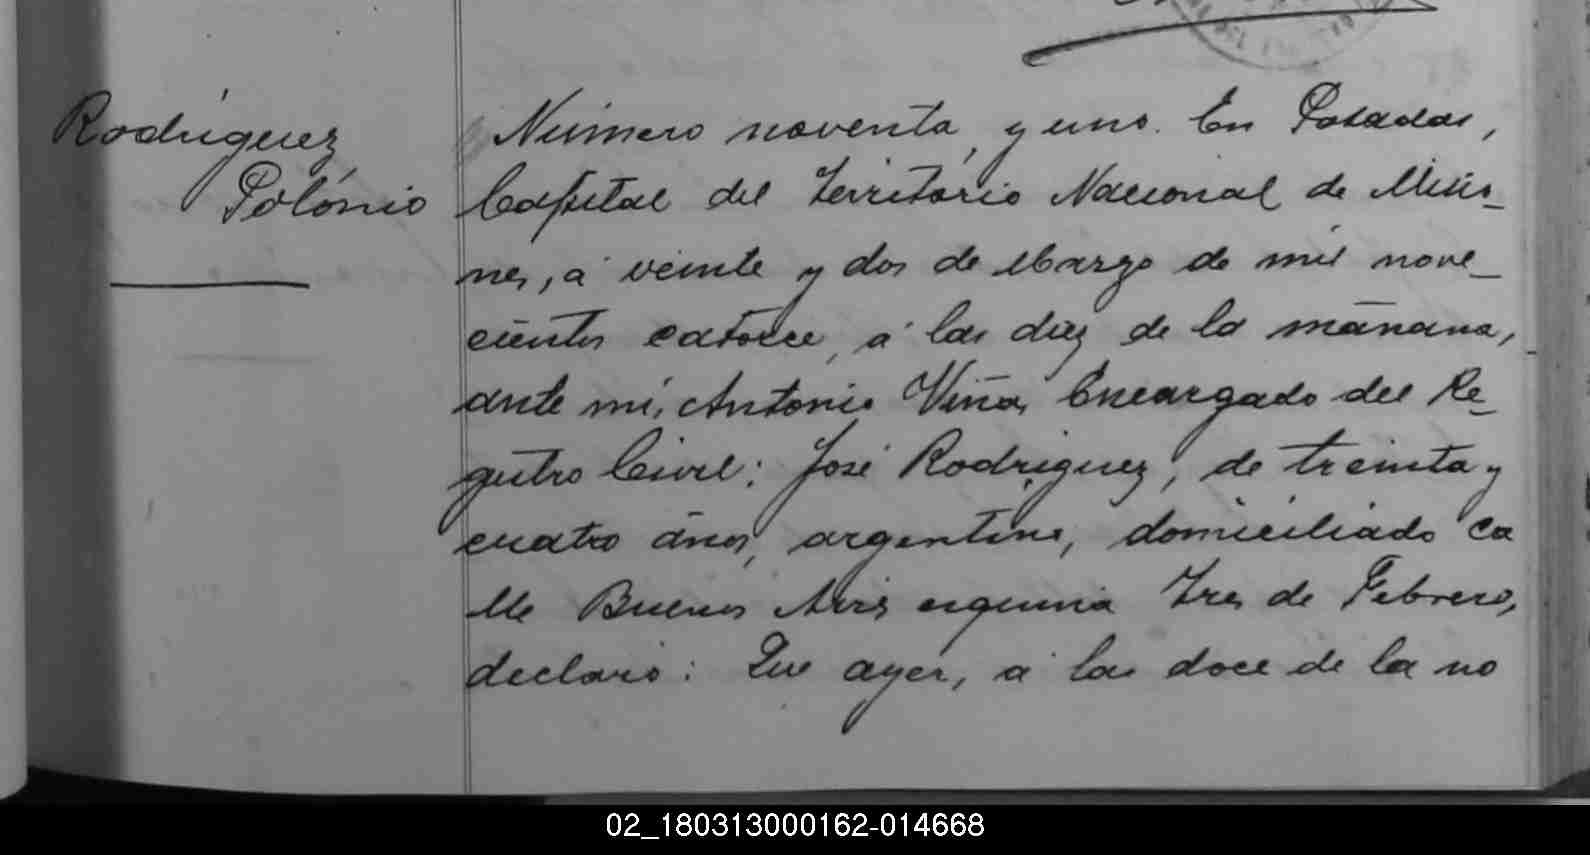 Rodriguez
Polónio
Número noventa y uno. En Posadas,
Capital del Territorio Nacional de Misio-
nes, á veinte y dos de Marzo de mil nove-
cientos catorce, á las diez de la mañana,
ante mí, Antonio Viña, Encargado del Re-
gistro Civil: José Rodriguez, de treinta y
cuatro años, argentino, domiciliado ca
lle Buenos Aires esquina Tres de Febrero,
declaró: Que ayer, á las doce de la no
02_180313000162-014668